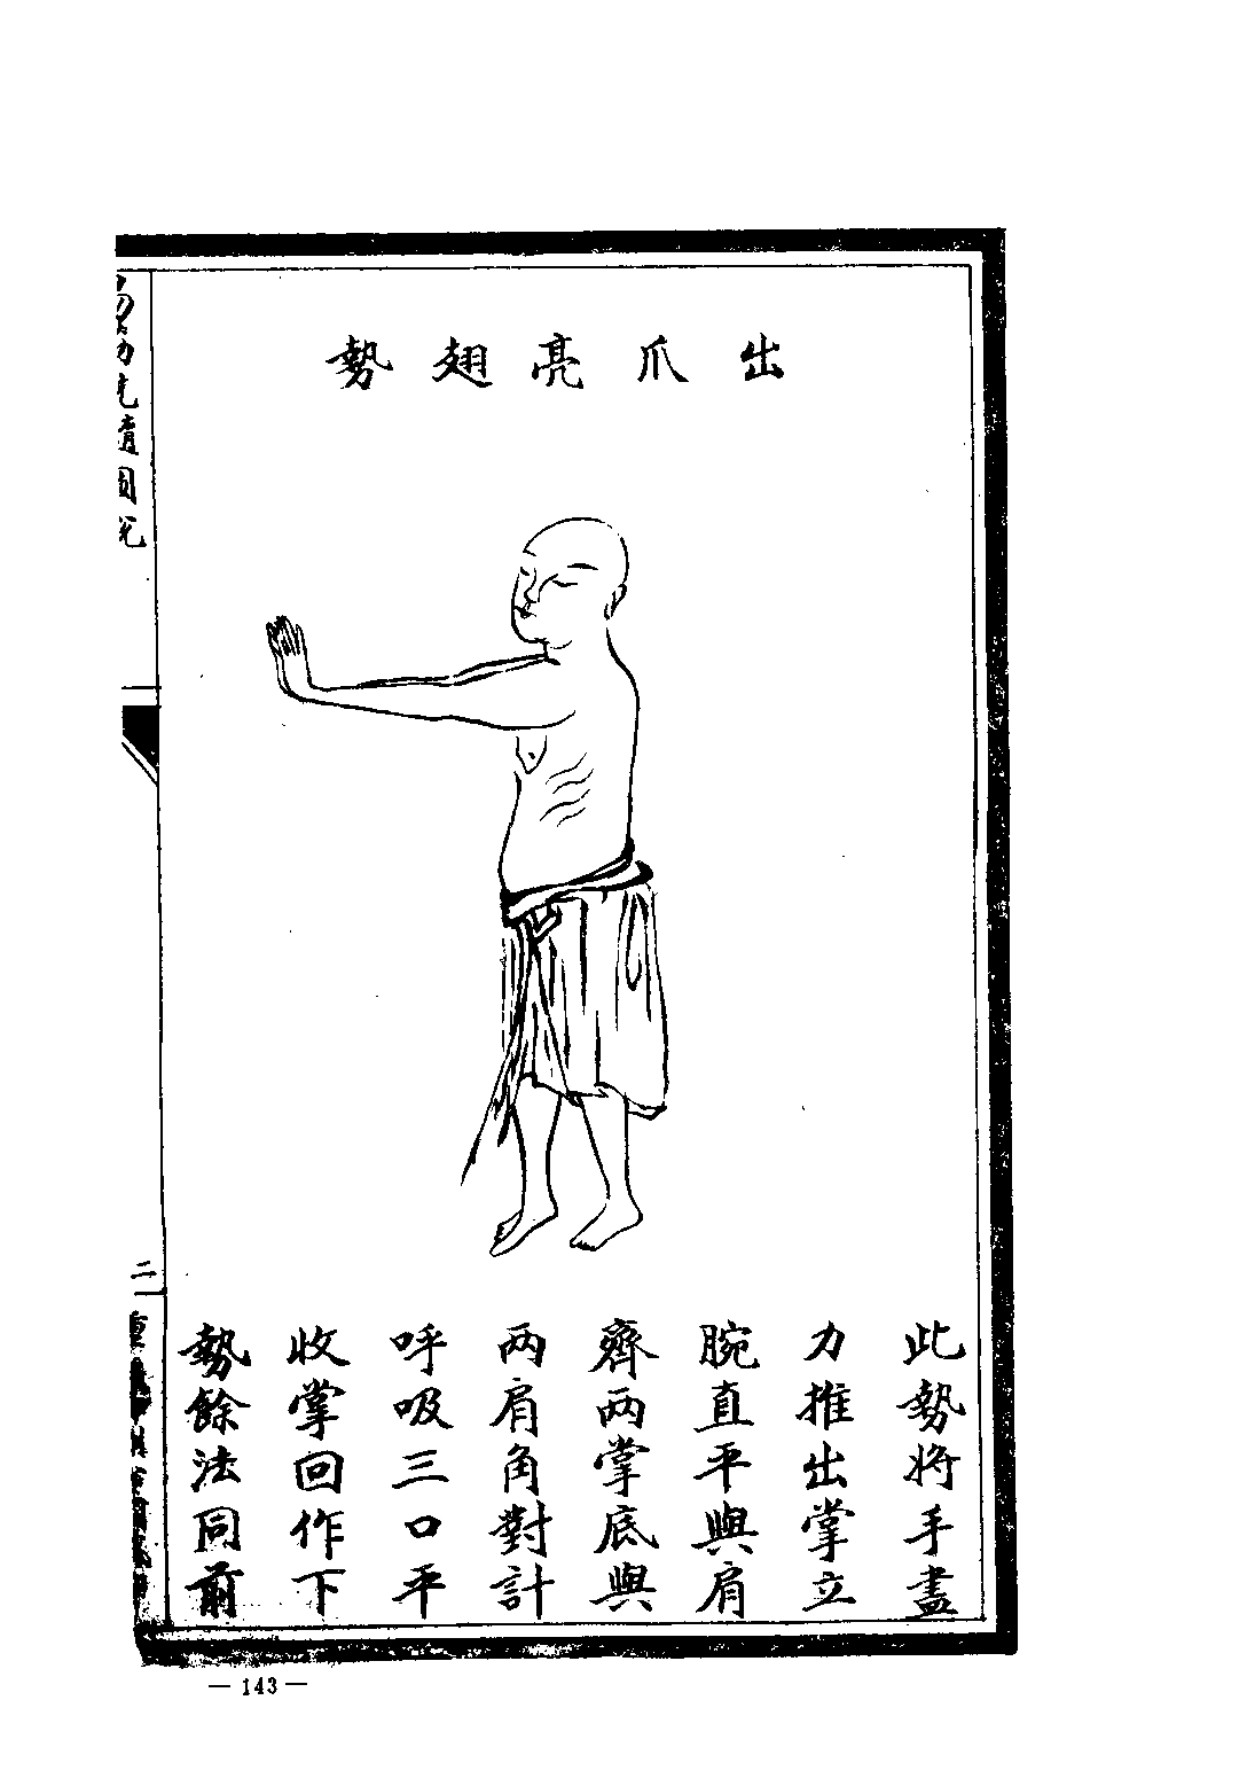 出爪亮翅勢
此勢將手盡
力推出掌立
腕直平與肩
齊两掌底與
两肩角對計
呼吸三口平
收掌回作下
勢餘法同前
二
— 143 —